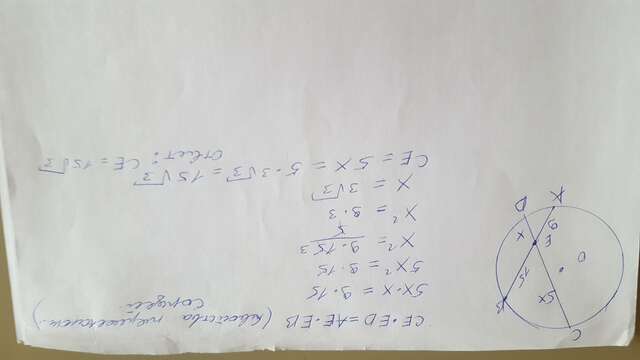 CE · ED = AE · EB (свойства пересекающ.
сопущей
5x · x = 9 · 15
5x² = 9 · 15
x² = 9 · 15 3
5
x² = 9 · 3
x = 3√3
CE = 5x = 5 · 3√3 = 15√3
Ответ: CE = 15√3
A
D
9
x
E
O
15
5x
B
C